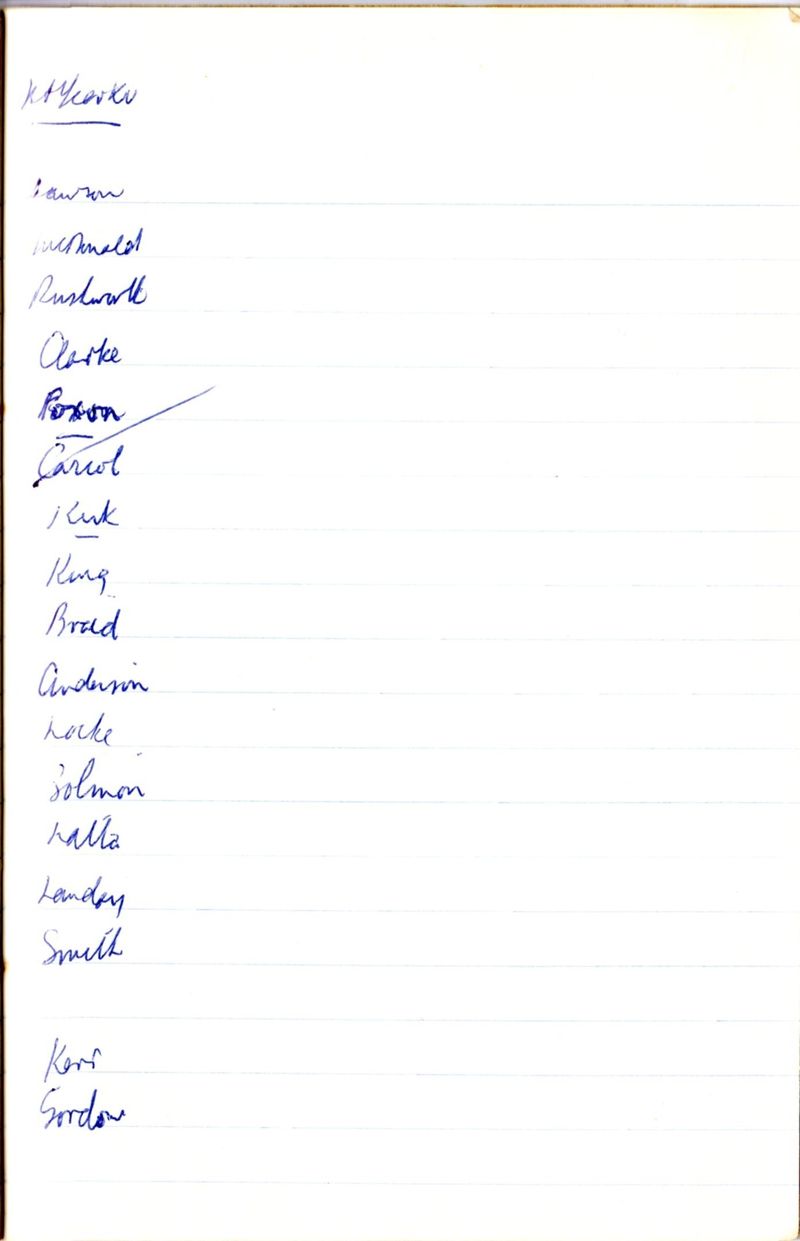 Lawson
McDonald
Rushworth
Clarke
Poxon
Carrol
Kirk
King
Braid
Anderson
Locke
Solmon
Latta
Landay
Smith
Keri
Gordon